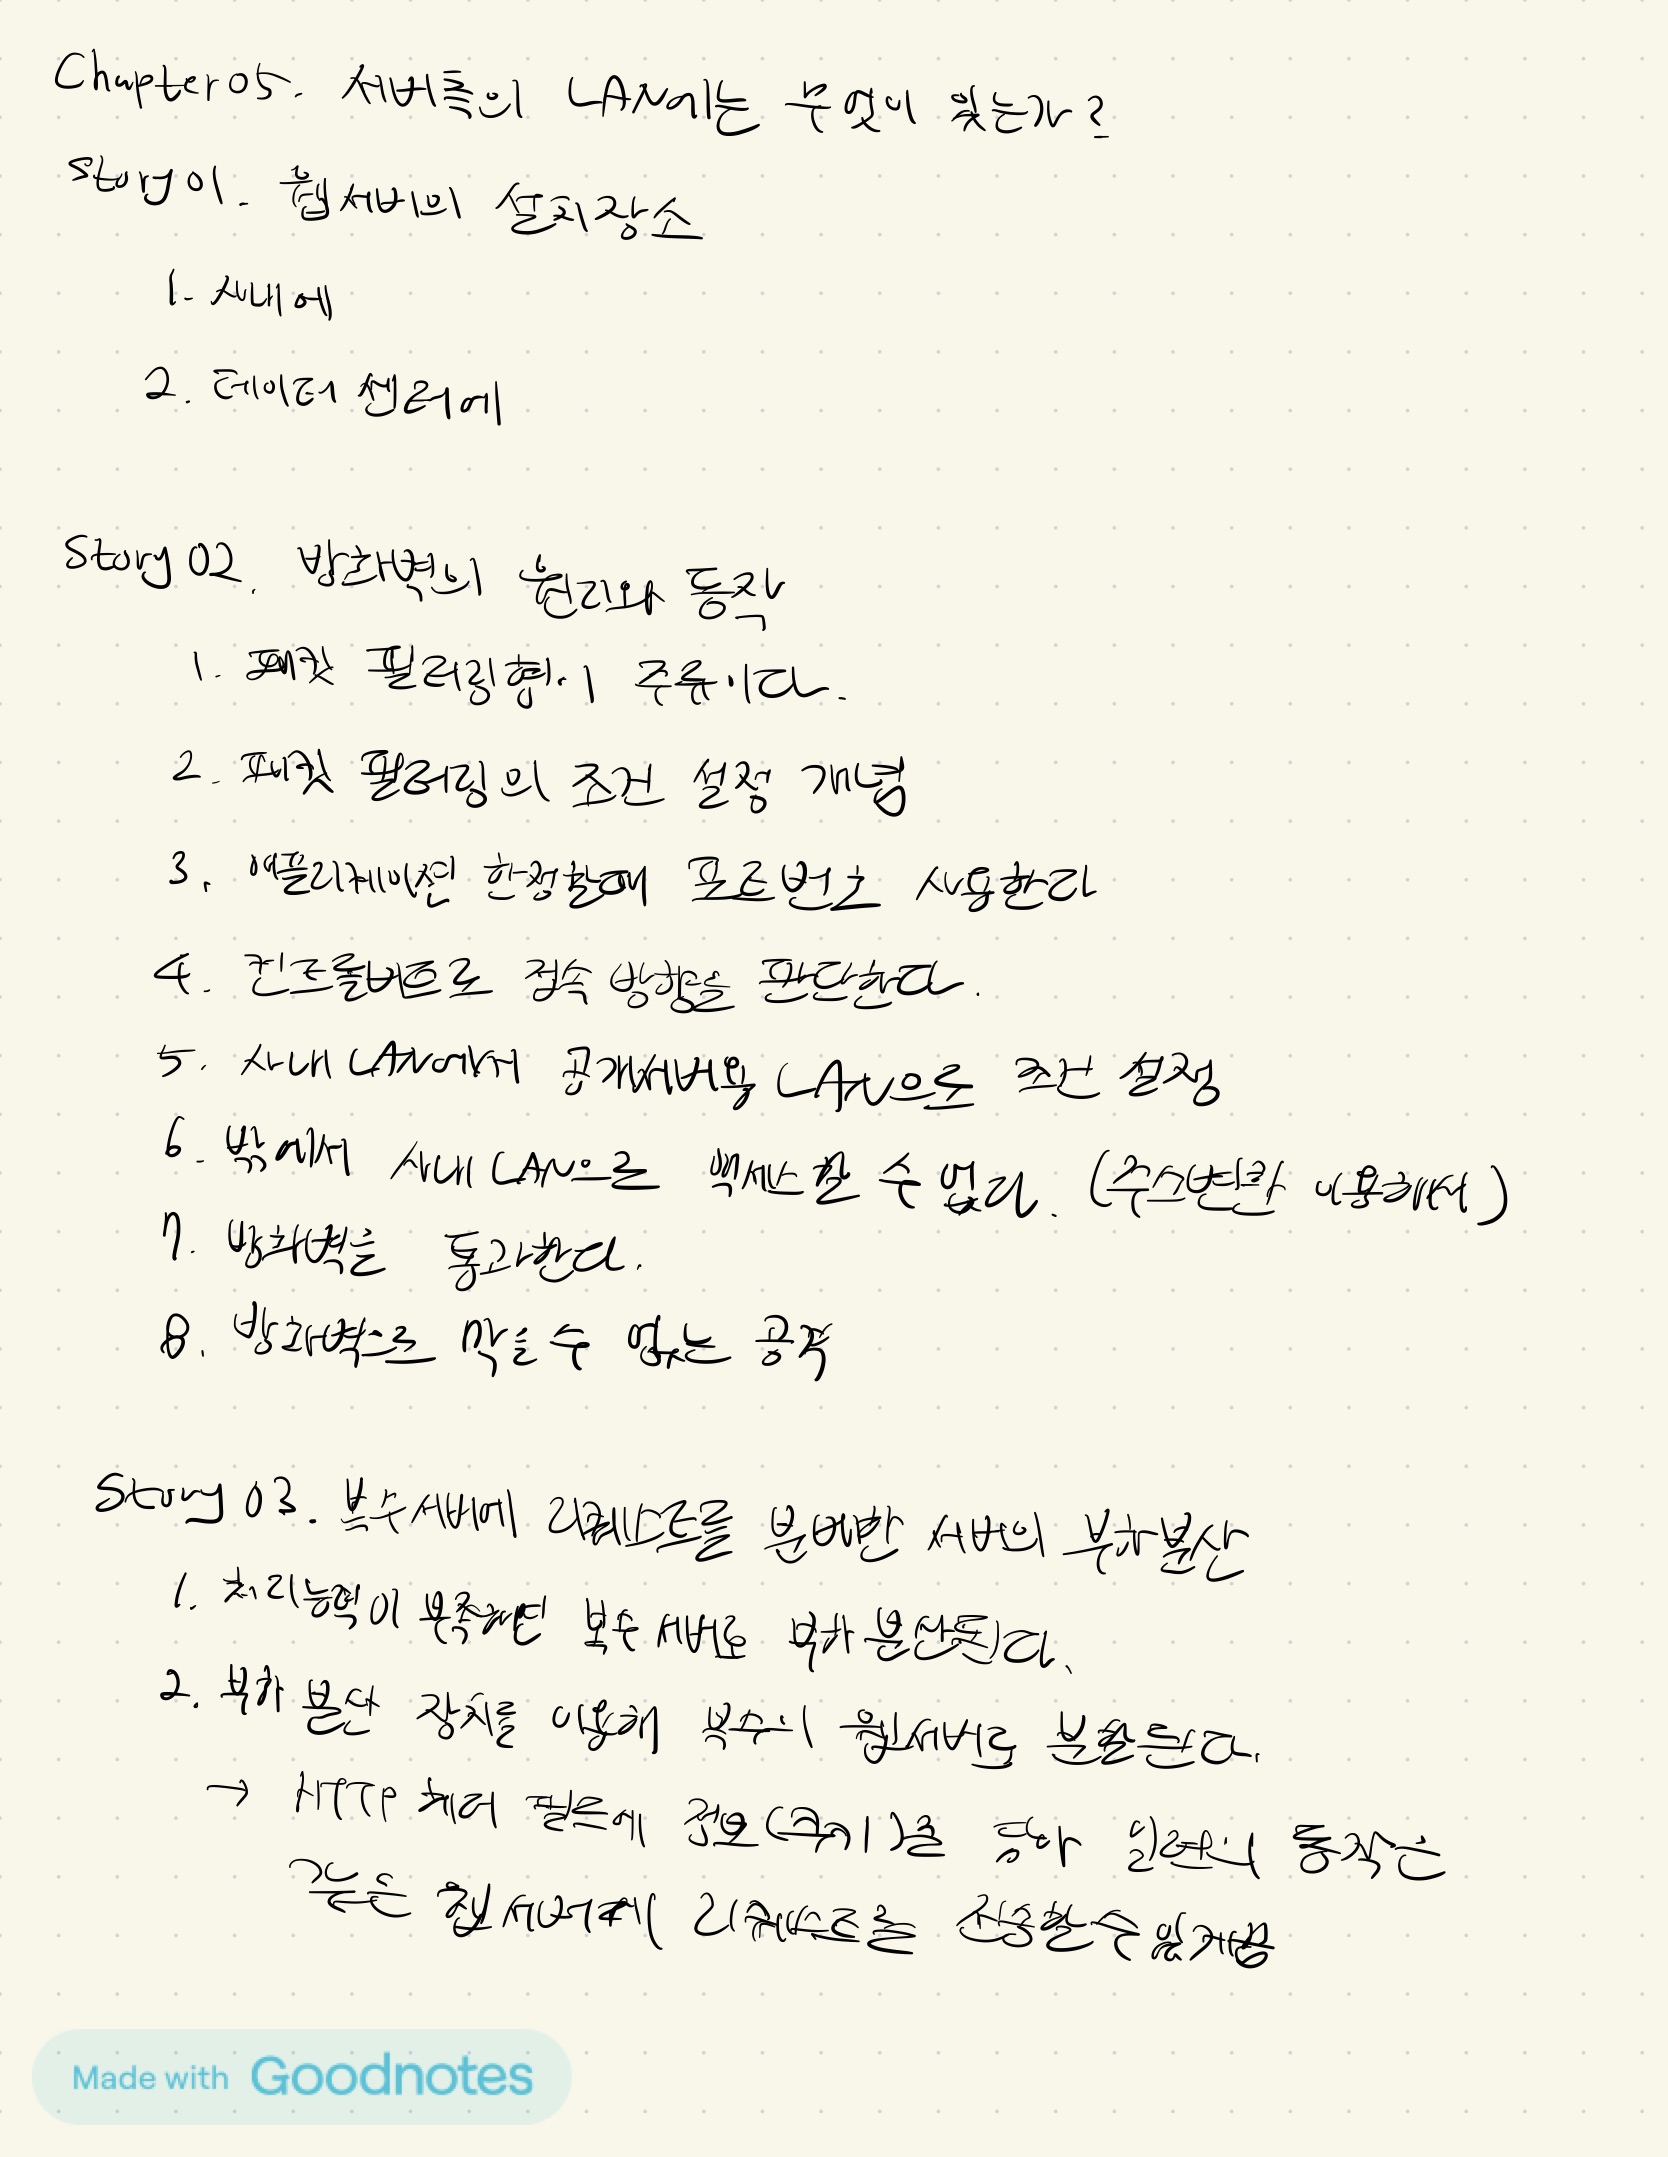 Chapter 05. 서버측의 LAN에는 무엇이 있는가?
Story 01. 웹서버의 설치장소
1. 사내에
2. 데이터 센터에
Story 02. 방화벽의 원리와 동작
1. 패킷 필터링형이 주류이다.
2. 패킷 필터링의 조건 설정 개념
3. 애플리케이션 한정할때 포트번호 사용한다
4. 컨트롤비트로 접속 방향을 판단한다.
5. 사내 LAN에서 공개서버용 LAN으로 조건 설정
6. 밖에서 사내 LAN으로 액세스할 수 없다. (주소변환 이용해서)
7. 방화벽을 통과한다.
8. 방화벽으로 막을 수 없는 공격
Story 03. 복수서버에 리퀘스트를 분배한 서버의 부하분산
1. 처리능력이 부족하면 복수 서버로 부하 분산된다.
2. 부하 분산 장치를 이용해 복수의 웹서버로 분할된다.
→ HTTP 헤더 필드에 정보(쿠키)를 담아 일련의 동작은
같은 웹서버에 리퀘스트를 전송할수있게끔
Made with Goodnotes